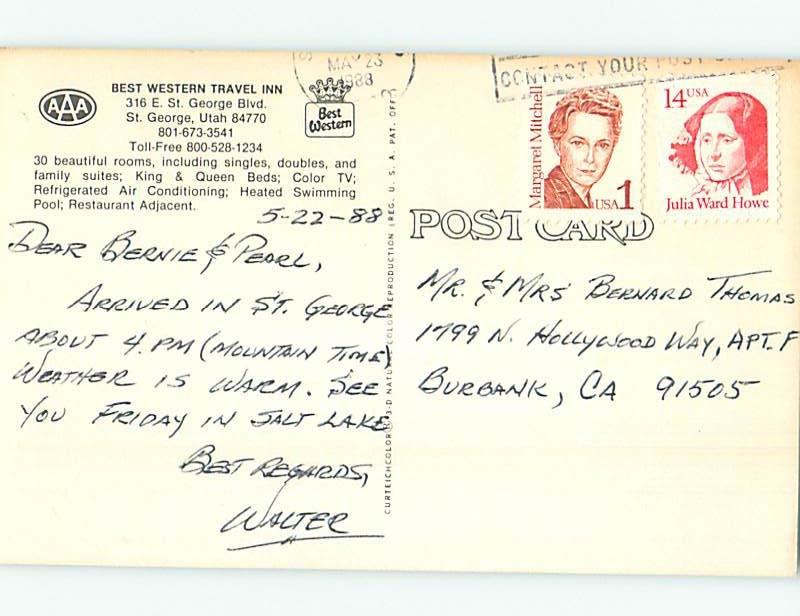 AAA
BEST WESTERN TRAVEL INN
316 E. St. George Blvd.
St. George, Utah 84770
801-673-3541
Toll-Free 800-528-1234
30 beautiful rooms, including singles, doubles, and
family suites; King & Queen Beds; Color TV;
Refrigerated Air Conditioning; Heated Swimming
Pool; Restaurant Adjacent.
Best
Western
MAY 23
1988
CONTACT YOUR POST
Margaret Mitchell
USA 1
14 USA
Julia Ward Howe
POST CARD
5-22-88
DEAR BERNIE & PEARL,
ARRIVED IN ST. GEORGE
ABOUT 4 PM (MOUNTAIN TIME)
WEATHER IS WARM. SEE
YOU FRIDAY IN SALT LAKE
BEST REGARDS,
WALTER
CURTEICHCOLOR® 3-D NATURAL COLOR REPRODUCTION (REG. U. S. A. PAT. OFF.)
MR. & MRS BERNARD THOMAS
1799 N. HOLLYWOOD WAY, APT. F
BURBANK, CA 91505